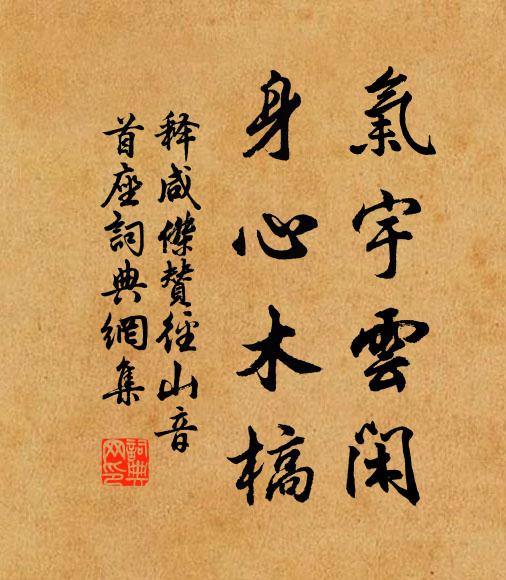 氣宇雲閑
身心木槁
释咸傑贊徑山音
首座詞典網集
詞典网印